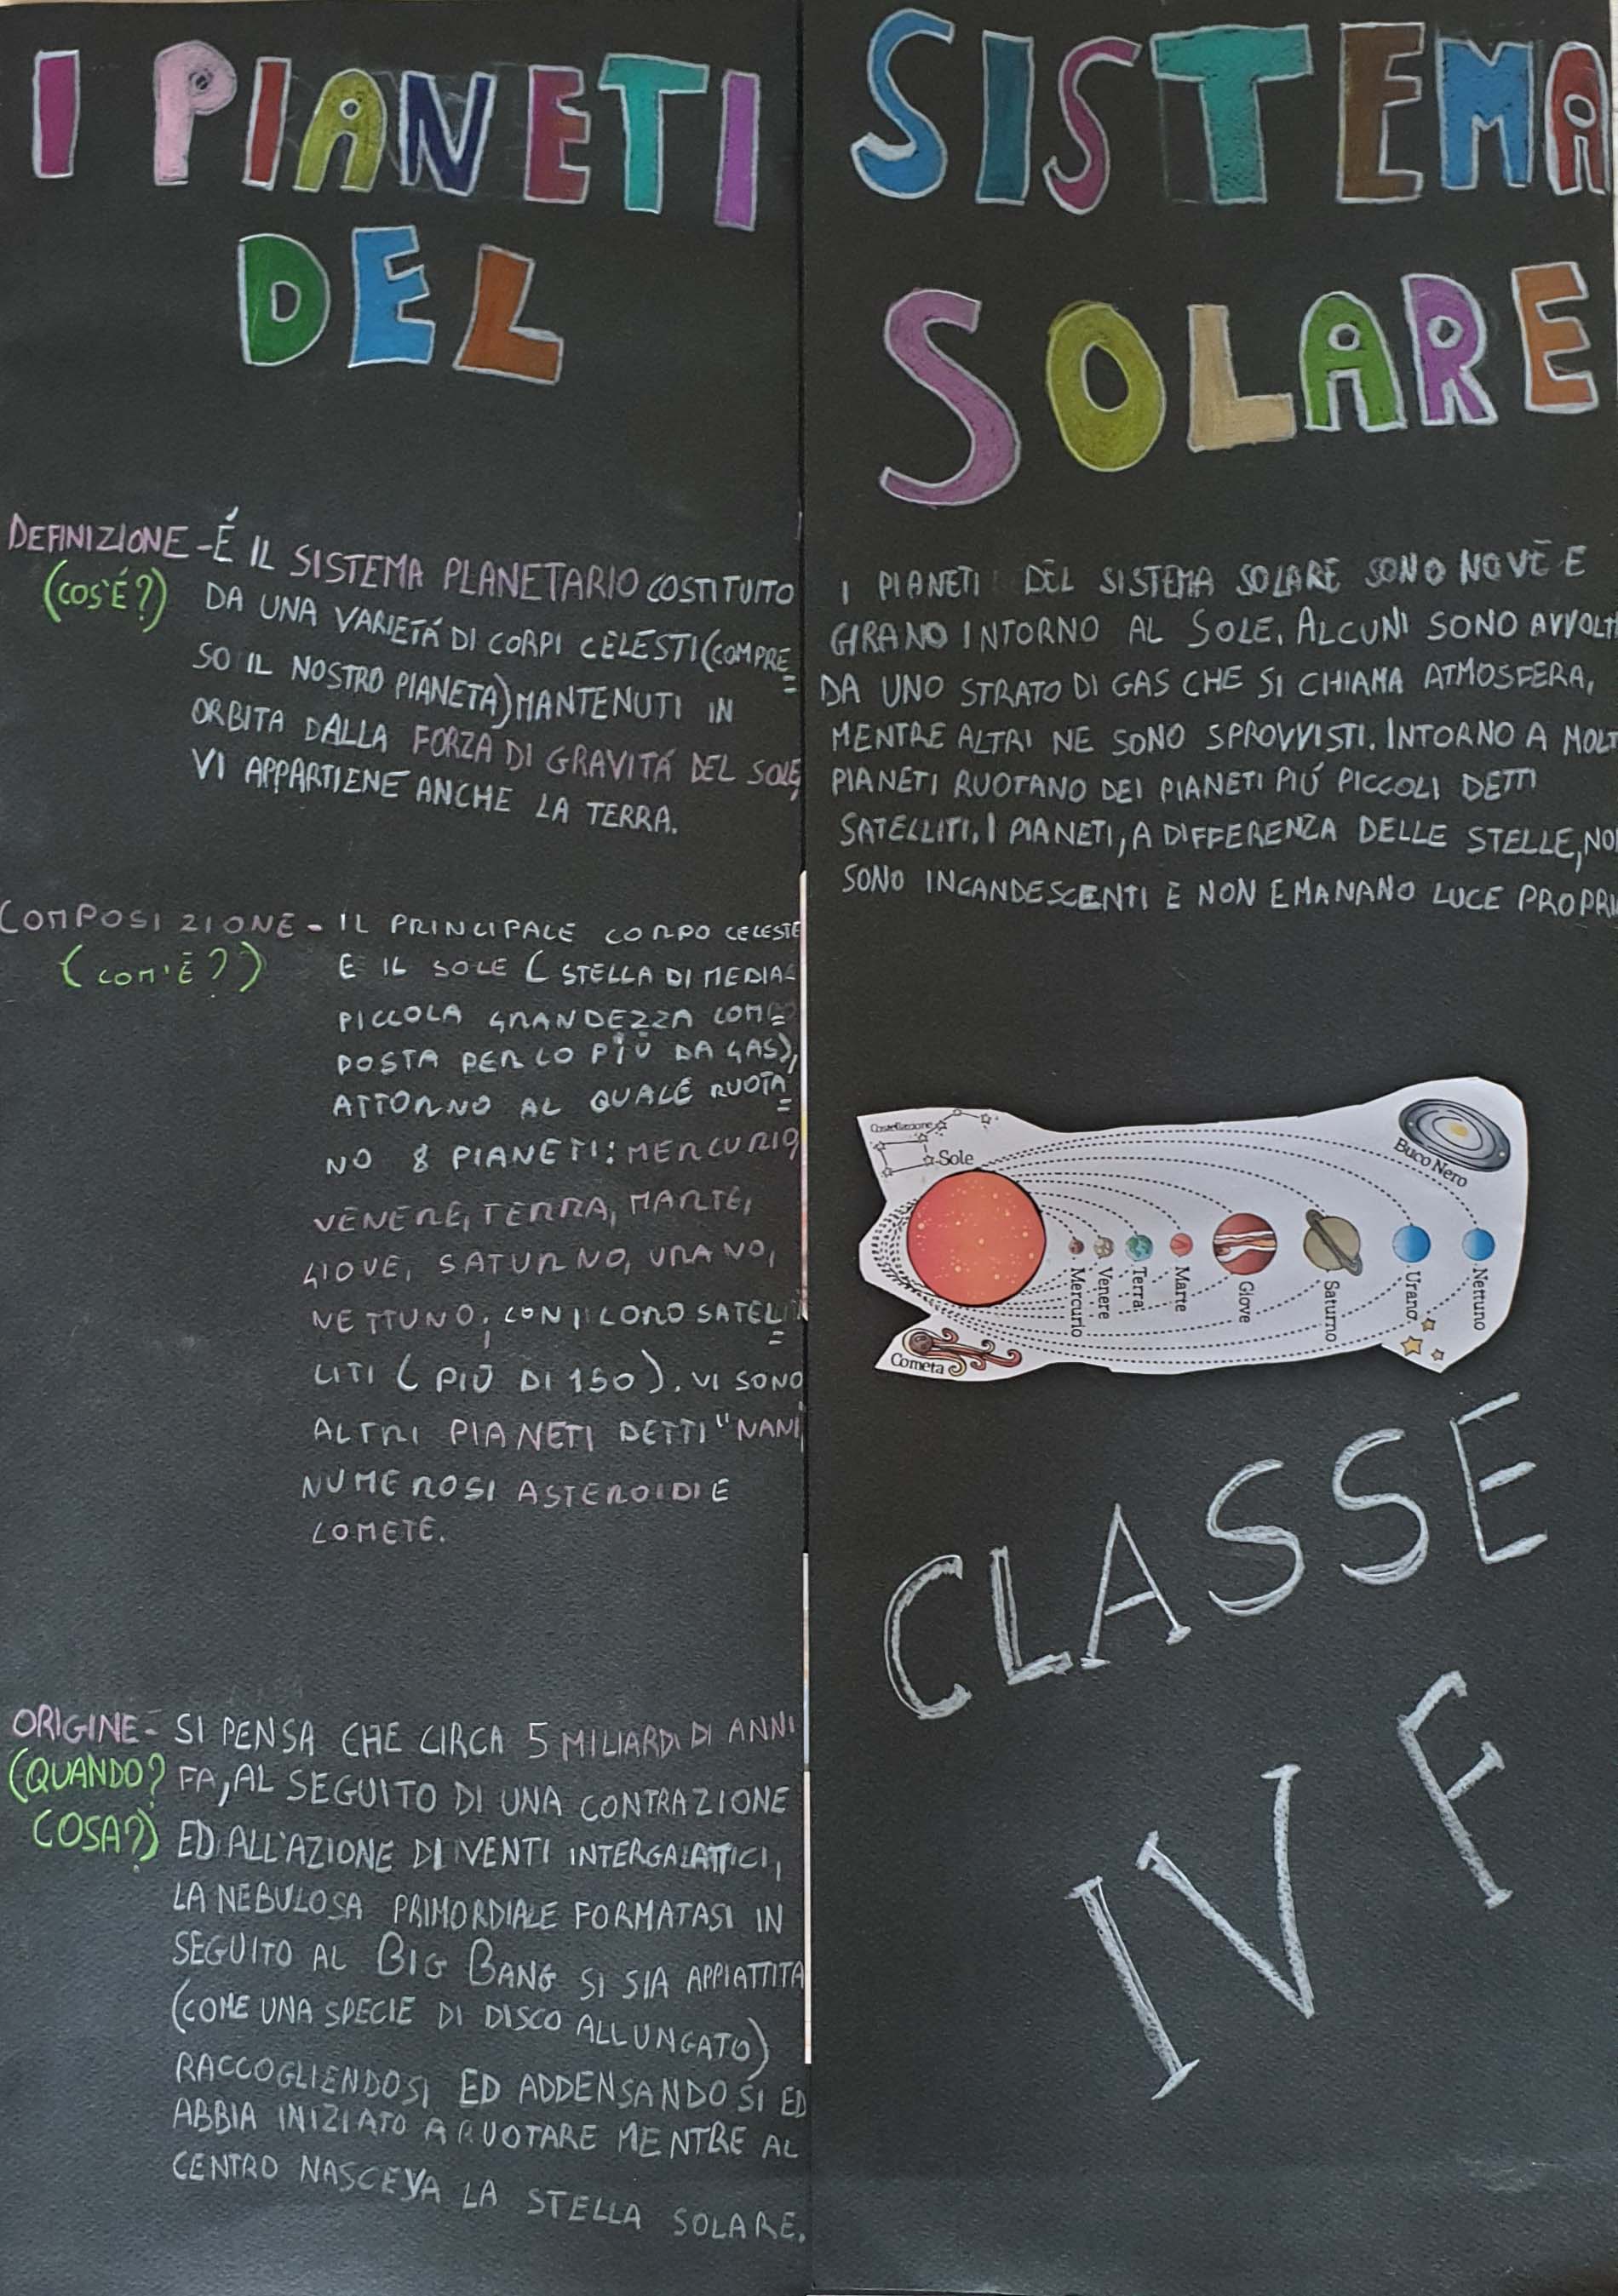 I PIANETI
DEL
SISTEMA
SOLARE
DEFINIZIONE - É IL SISTEMA PLANETARIO COSTITUITO
(COS'É?) DA UNA VARIETÁ DI CORPI CELESTI (COMPRE=
SO IL NOSTRO PIANETA) MANTENUTI IN
ORBITA DALLA FORZA DI GRAVITÁ DEL SOLE,
VI APPARTIENE ANCHE LA TERRA.
COMPOSIZIONE - IL PRINCIPALE CORPO CELESTE
(COM'È?) E IL SOLE (STELLA DI MEDIA-
PICCOLA GRANDEZZA COM=
POSTA PER LO PIÙ DA GAS),
ATTORNO AL QUALE RUOTA=
NO 8 PIANETI: MERCURIO,
VENERE, TERRA, MARTE,
GIOVE, SATURNO, URANO,
NETTUNO; CON I LORO SATEL=
LITI (PIÙ DI 150). VI SONO
ALTRI PIANETI DETTI "NANI
NUMEROSI ASTEROIDI E
COMETE.
ORIGINE - SI PENSA CHE CIRCA 5 MILIARDI DI ANNI
(QUANDO? FA, AL SEGUITO DI UNA CONTRAZIONE
COSA?) ED ALL'AZIONE DI VENTI INTERGALATTICI,
LA NEBULOSA PRIMORDIALE FORMATASI IN
SEGUITO AL BIG BANG SI SIA APPIATTITA
(COME UNA SPECIE DI DISCO ALLUNGATO)
RACCOGLIENDOSI ED ADDENSANDOSI ED
ABBIA INIZIATO A RUOTARE MENTRE AL
CENTRO NASCEVA LA STELLA SOLARE.
I PIANETI DEL SISTEMA SOLARE SONO NOVE E
GIRANO INTORNO AL SOLE. ALCUNI SONO AVVOLTI
DA UNO STRATO DI GAS CHE SI CHIAMA ATMOSFERA,
MENTRE ALTRI NE SONO SPROVVISTI. INTORNO A MOLT
PIANETI RUOTANO DEI PIANETI PIÚ PICCOLI DETTI
SATELLITI. I PIANETI, A DIFFERENZA DELLE STELLE, NO
SONO INCANDESCENTI E NON EMANANO LUCE PROPRI
Costellazione
Sole
Buco Nero
Mercurio
Venere
Terra
Marte
Giove
Saturno
Urano
Nettuno
Cometa
CLASSE
IV F